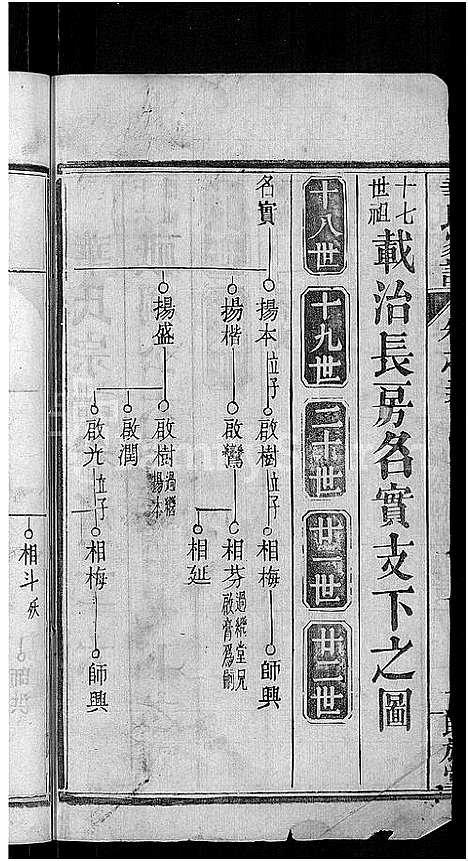 十七世祖載治長房名實支下之圖
十八世
十九世
二十世
廿一世
廿二世
名實
揚本 立子 啟樹 立子 相梅 師興
揚楷 啟鸞 相芬 過繼堂兄啟膏為嗣
相延
揚盛 啟樹 過繼揚本
啟潤
啟光 立子 相梅 師興
相斗 殀
師洪
氏宗